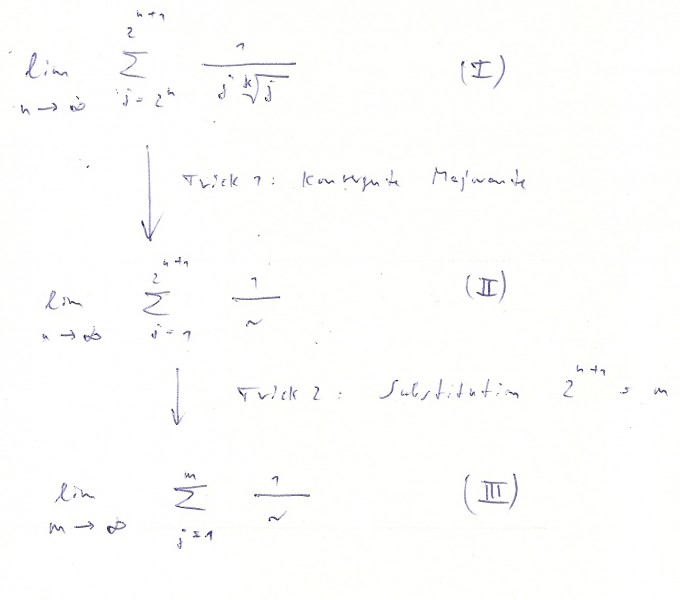 lim_{n→∞} ∑_{j=2^n}^{2^{n+1}} 1/(j ᵏ√j) (I)
Trick 1: Konvergente Majorante
lim_{n→∞} ∑_{j=1}^{2^{n+1}} 1/~ (II)
Trick 2: Substitution 2^{n+1} = m
lim_{m→∞} ∑_{j=1}^{m} 1/~ (III)